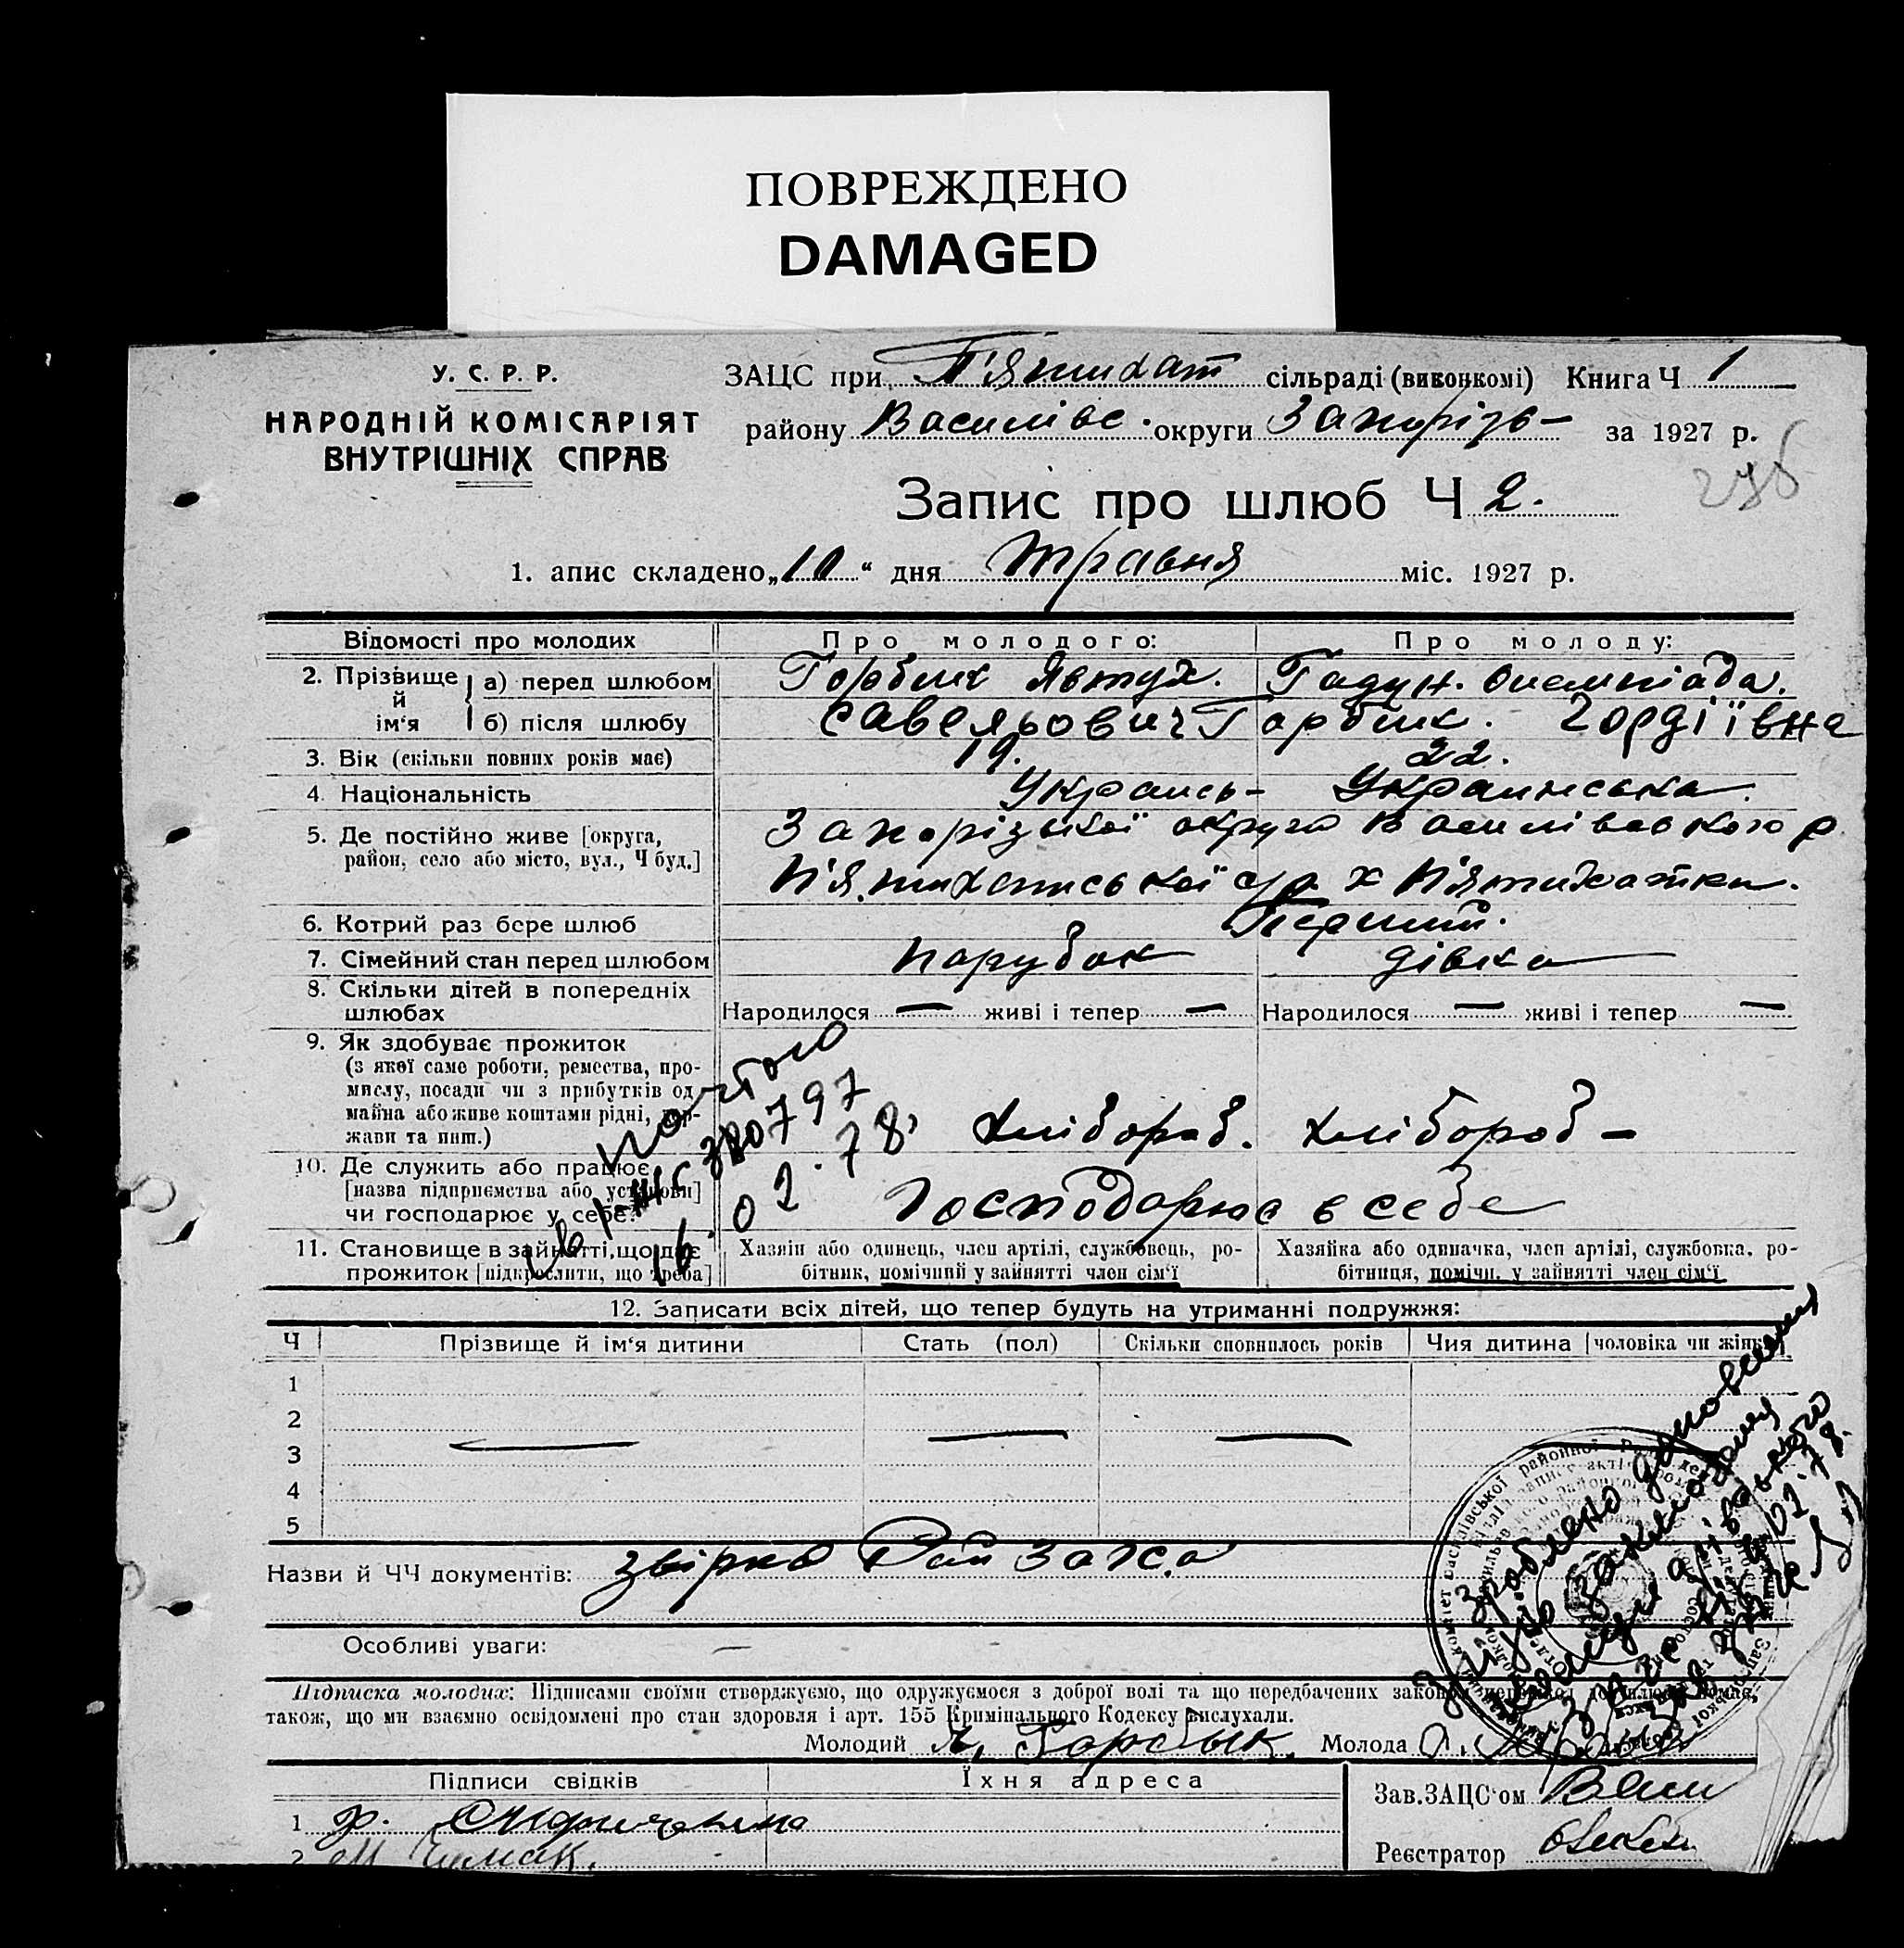 ПОВРЕЖДЕНО
DAMAGED
У. С. Р. Р.
НАРОДНІЙ КОМІСАРІЯТ
ВНУТРІШНІХ СПРАВ
ЗАЦС при П'ятихат сільраді (виконкомі) Книга Ч 1
району Василівс. округи Запорізь- за 1927 р.
Запис про шлюб Ч 2.
1. апис складено „10“ дня травня міс. 1927 р.
Відомості про молодих
Про молодого:
Про молоду:
2. Прізвище й ім‘я
а) перед шлюбом
Горбик Явтух.
Гадун. Олемпіада.
б) після шлюбу
Савельович Горбик. Гордіївна
3. Вік (скільки повних років має)
19.
22.
4. Національність
Украись-
Украинська.
5. Де постійно живе [округа, район, село або місто, вул., Ч буд.]
Запорізької округи Василівського р.
П'ятихатської с/р х П'ятихатки.
6. Котрий раз бере шлюб
Перший.
7. Сімейний стан перед шлюбом
парубок
дівка
8. Скільки дітей в попередніх шлюбах
Народилося — живі і тепер —
Народилося — живі і тепер —
9. Як здобуває прожиток
(з якої саме роботи, ремества, про-
мислу, посади чи з прибутків од
майна або живе коштами рідні, дер-
жави та инш.)
Хлібороб. Хлібороб-
10. Де служить або працює
[назва підприємства або установи]
чи господарює у себе?
Господарює в себе
380797
16.02.78
11. Становище в зайнятті, що дає
прожиток [підкреслити, що треба]
Хазяїн або одинець, член артілі, службовець, ро-
бітник, помічний у зайнятті член сім‘ї
Хазяйка або одиначка, член артілі, службовка, ро-
бітниця, помічн. у зайнятті член сім‘ї
12. Записати всіх дітей, що тепер будуть на утриманні подружжя:
Ч
Прізвище й ім‘я дитини
Стать (пол)
Скільки сповнилось років
Чия дитина [чоловіка чи жінки]
1
2
3
4
5
Назви й ЧЧ документів: звірко Рай загса
Особливі уваги: —
Підписка молодих: Підписами своїми стверджуємо, що одружуємося з доброї волі та що передбачених законом
також, що ми взаємно освідомлені про стан здоровля і арт. 155 Кримінального Кодексу вислухали.
Молодий Я. Горбык. Молода
Підписи свідків
Їхня адреса
1
2 М Чумак.
Зав. ЗАЦС‘ом
Реєстратор